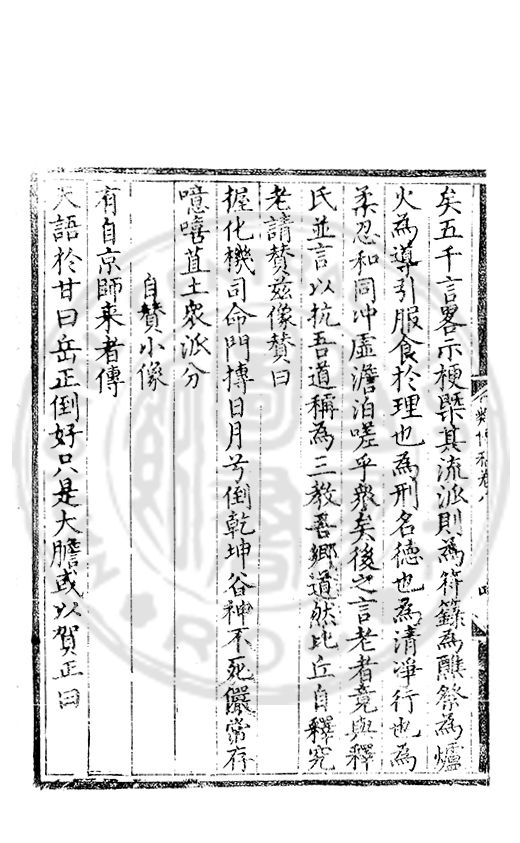 矣五千言畧示梗槩其流派則為符籙為醮祭為爐
火為導引服食於理也為刑名德也為清淨行也為
柔忍和同冲虛澹泊嗟乎衆矣後之言老者竟與釋
氏並言以抗吾道稱為三教吾鄉道然比丘自釋究
老請賛兹像賛曰
握化機司命門摶日月兮倒乾坤谷神不死儼常存
噫嘻苴土衆派分
自賛小像
有自京師来者傳
天語於甘曰岳正倒好只是大膽或以賀正曰